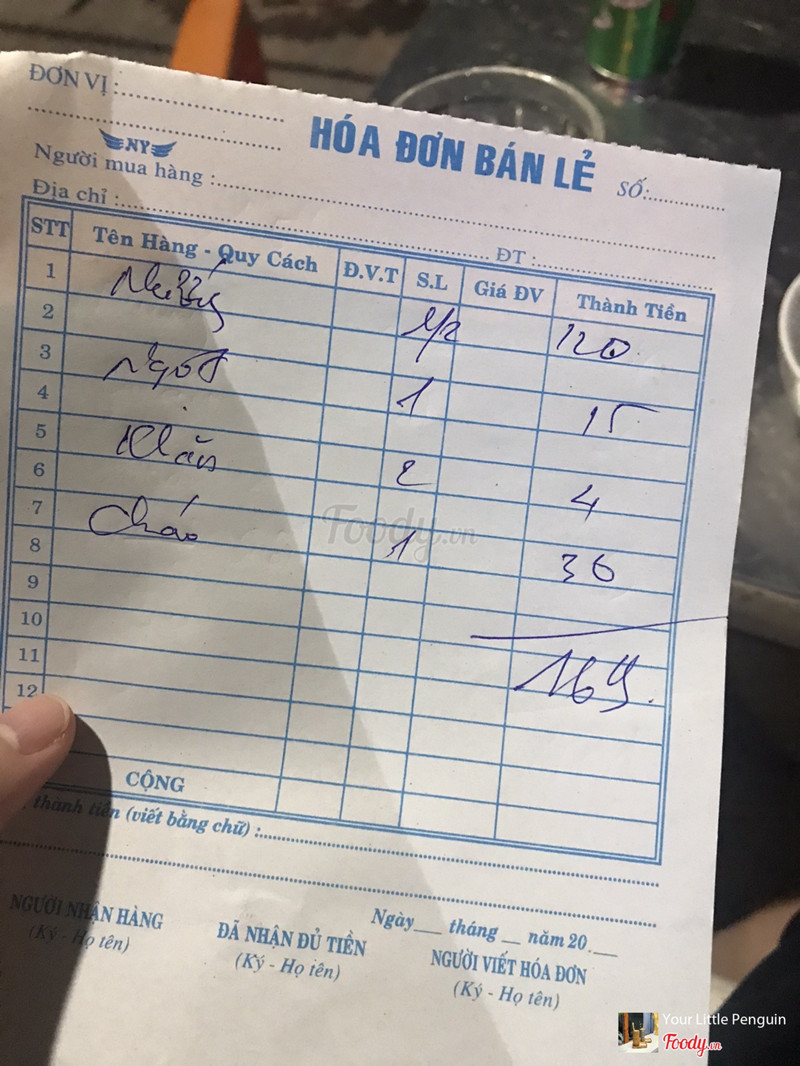 ĐƠN VỊ :
HÓA ĐƠN BÁN LẺ
SỐ:
NY
Người mua hàng :
Địa chỉ :
ĐT :
STT Tên Hàng - Quy Cách Đ.V.T S.L Giá ĐV Thành Tiền
1 Nướng 1/2 120
2
3 Ngọt 1 15
4
5 Khăn 2 4
6
7 Cháo 1 30
8
9
10 169
11
12
CỘNG
thành tiền (viết bằng chữ) :
Ngày tháng năm 20
NGƯỜI NHẬN HÀNG ĐÃ NHẬN ĐỦ TIỀN NGƯỜI VIẾT HÓA ĐƠN
(Ký - Họ tên) (Ký - Họ tên) (Ký - Họ tên)
Foody.vn
Your Little Penguin
Foody.vn